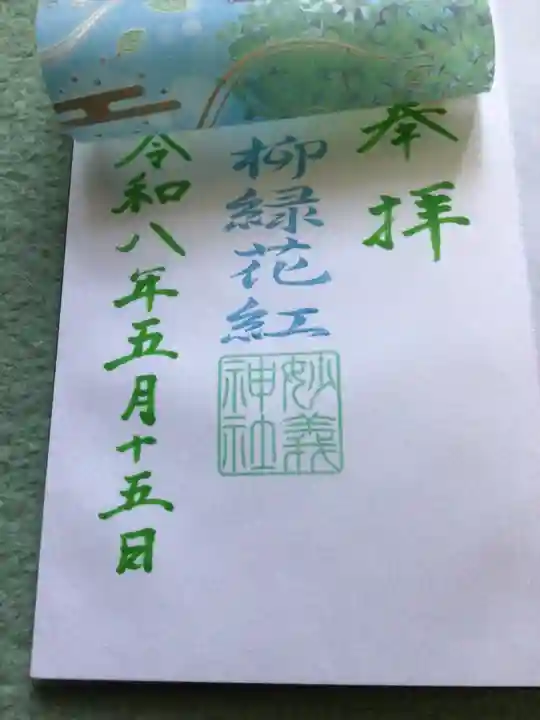 奉拝
柳緑花紅
妙義
神社
令和八年五月十五日